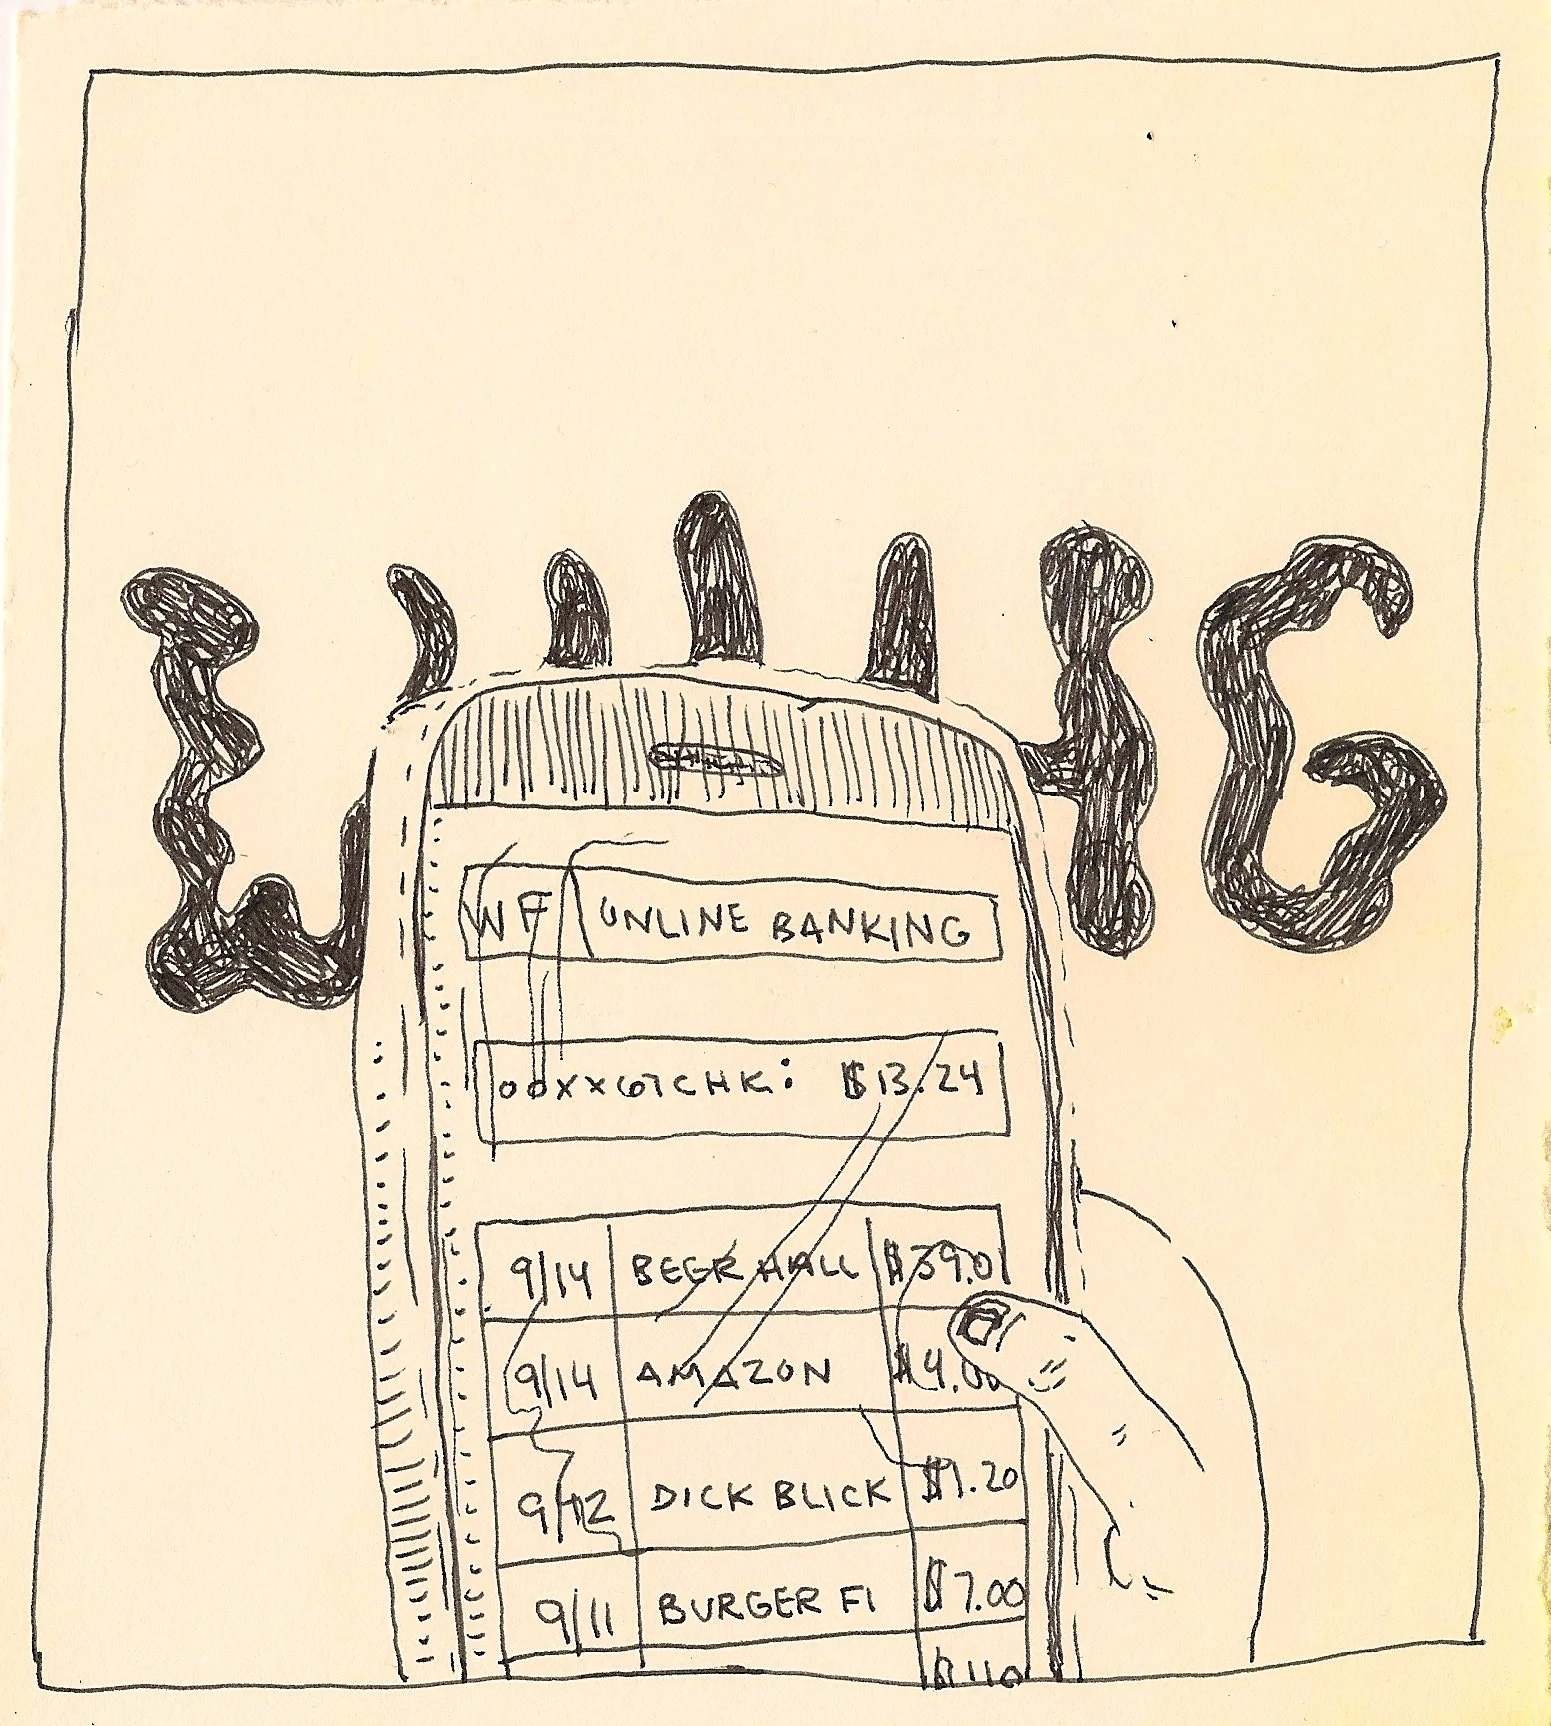 WF ONLINE BANKING
00XX67CHK: $13.24
9/14 BEER HALL $39.0
9/14 AMAZON $4.00
9/12 DICK BLICK $9.20
9/11 BURGER FI $7.00